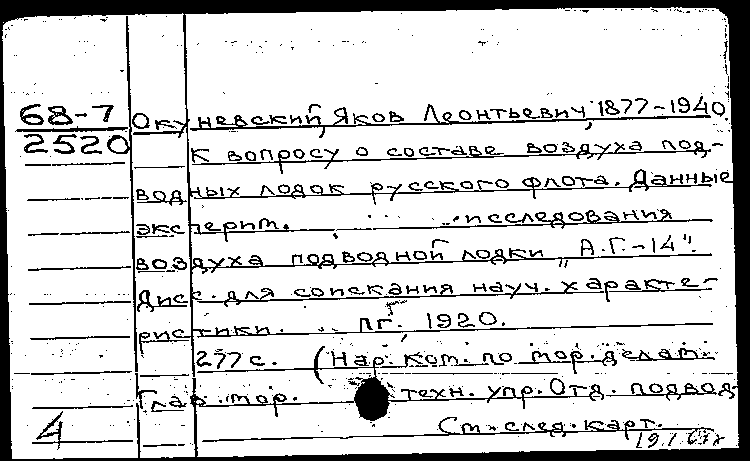 68-7
2520
Окуневский, Яков Леонтьевич, 1877-1940
К вопросу о составе воздуха под-
водных лодок русского флота. Данные
эксперим. исследования
воздуха подводной лодки „А.Г.-14".
Дисс. для соискания науч. характе-
ристики. Пг., 1920.
277 с. (Нар. ком. по мор. делам.
Глав. мор. техн. упр. Отд. подвод-
См. след. карт.
4